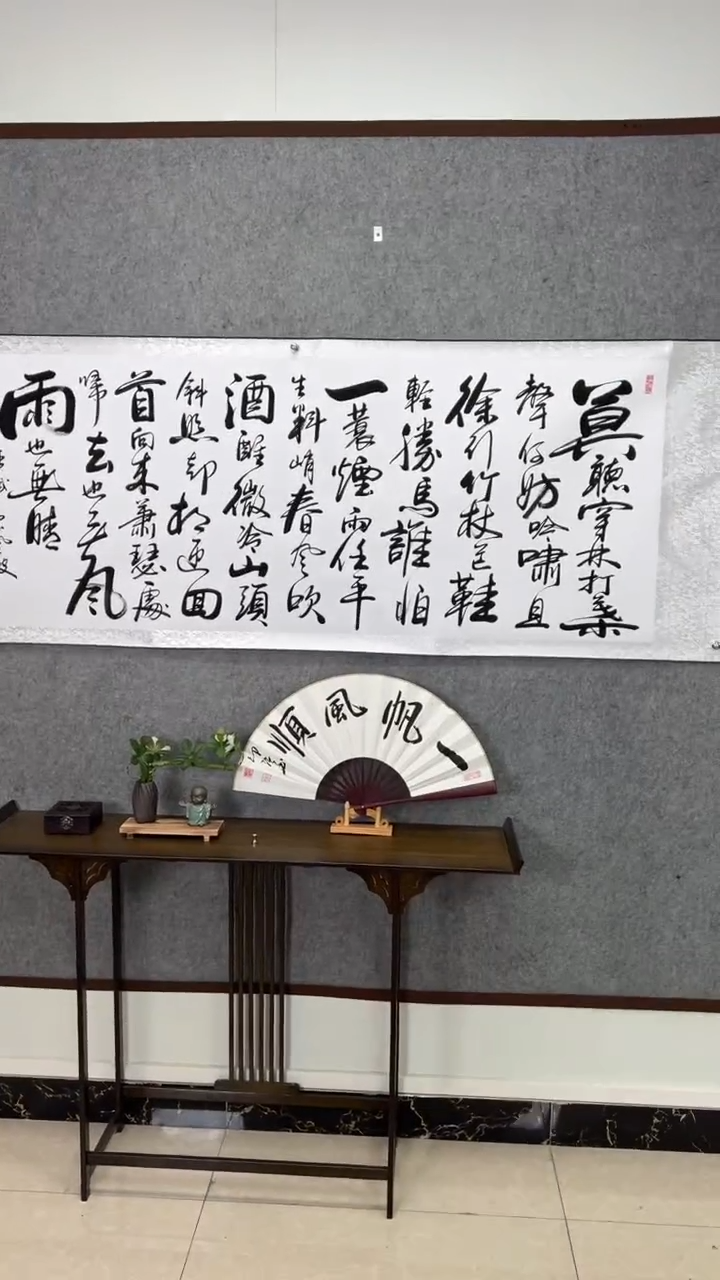 莫聽穿林打葉
聲何妨吟嘯且
徐行竹杖芒鞋
輕勝馬誰怕
一蓑煙雨任平
生料峭春風吹
酒醒微冷山頭
斜照却相迎回
首向来蕭瑟處
歸去也无風
雨也無晴
一帆風順